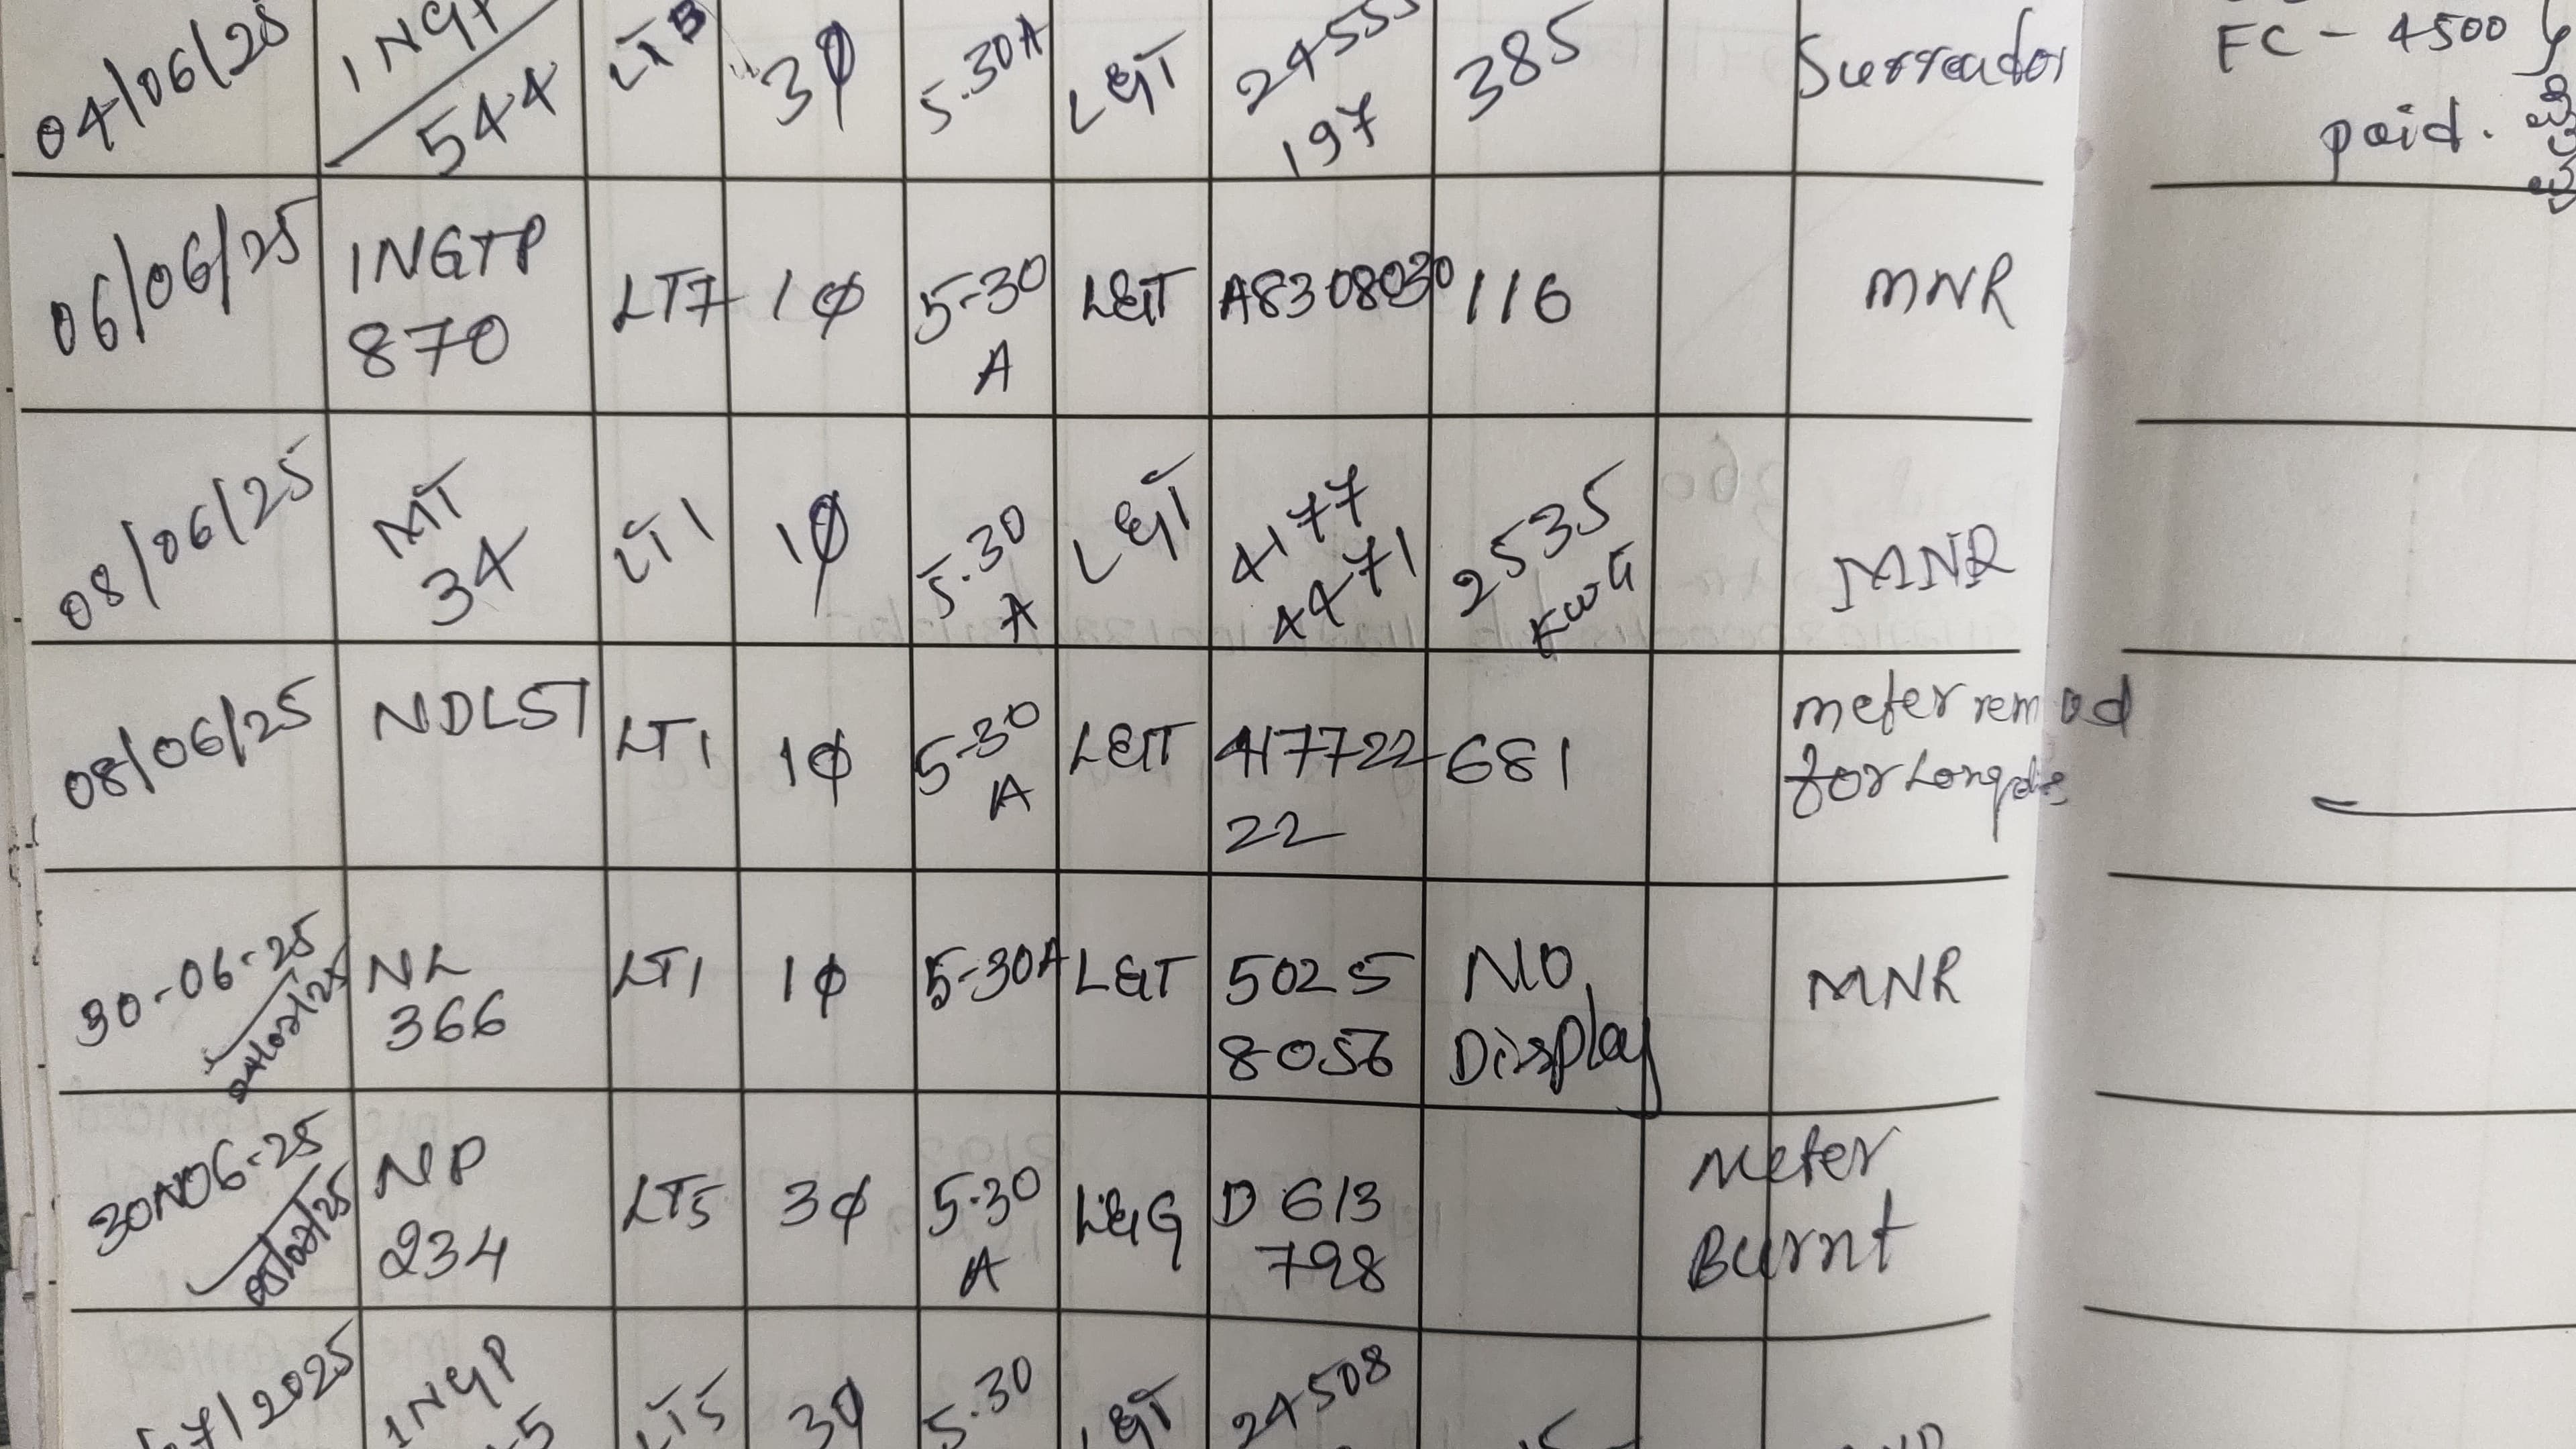 04/06/25 INGP 544 LTB 3φ 5.30A L&T 197 385 Surreador FC - 4500 paid.
06/06/25 INGTP 870 LT7 1φ 5-30 A L&T A8308030 116 MNR
08/06/25 MT 34 LT1 1φ 5.30 A L&T 4177 4471 2535 KWG MNR
08/06/25 NDL51 LT1 1φ 5-30 A L&T 417722 22 681 meter remod for Long
30-06-25 04/07/25 NL 366 LT1 1φ 5-30A L&T 5025 8056 NO Display MNR
30N06-25 05/07/25 NP 234 LT5 3φ 5.30 A L&G D 613 798 Meter Burnt
7/2025 INGP 5 LT5 3φ 5.30 L&T 24508